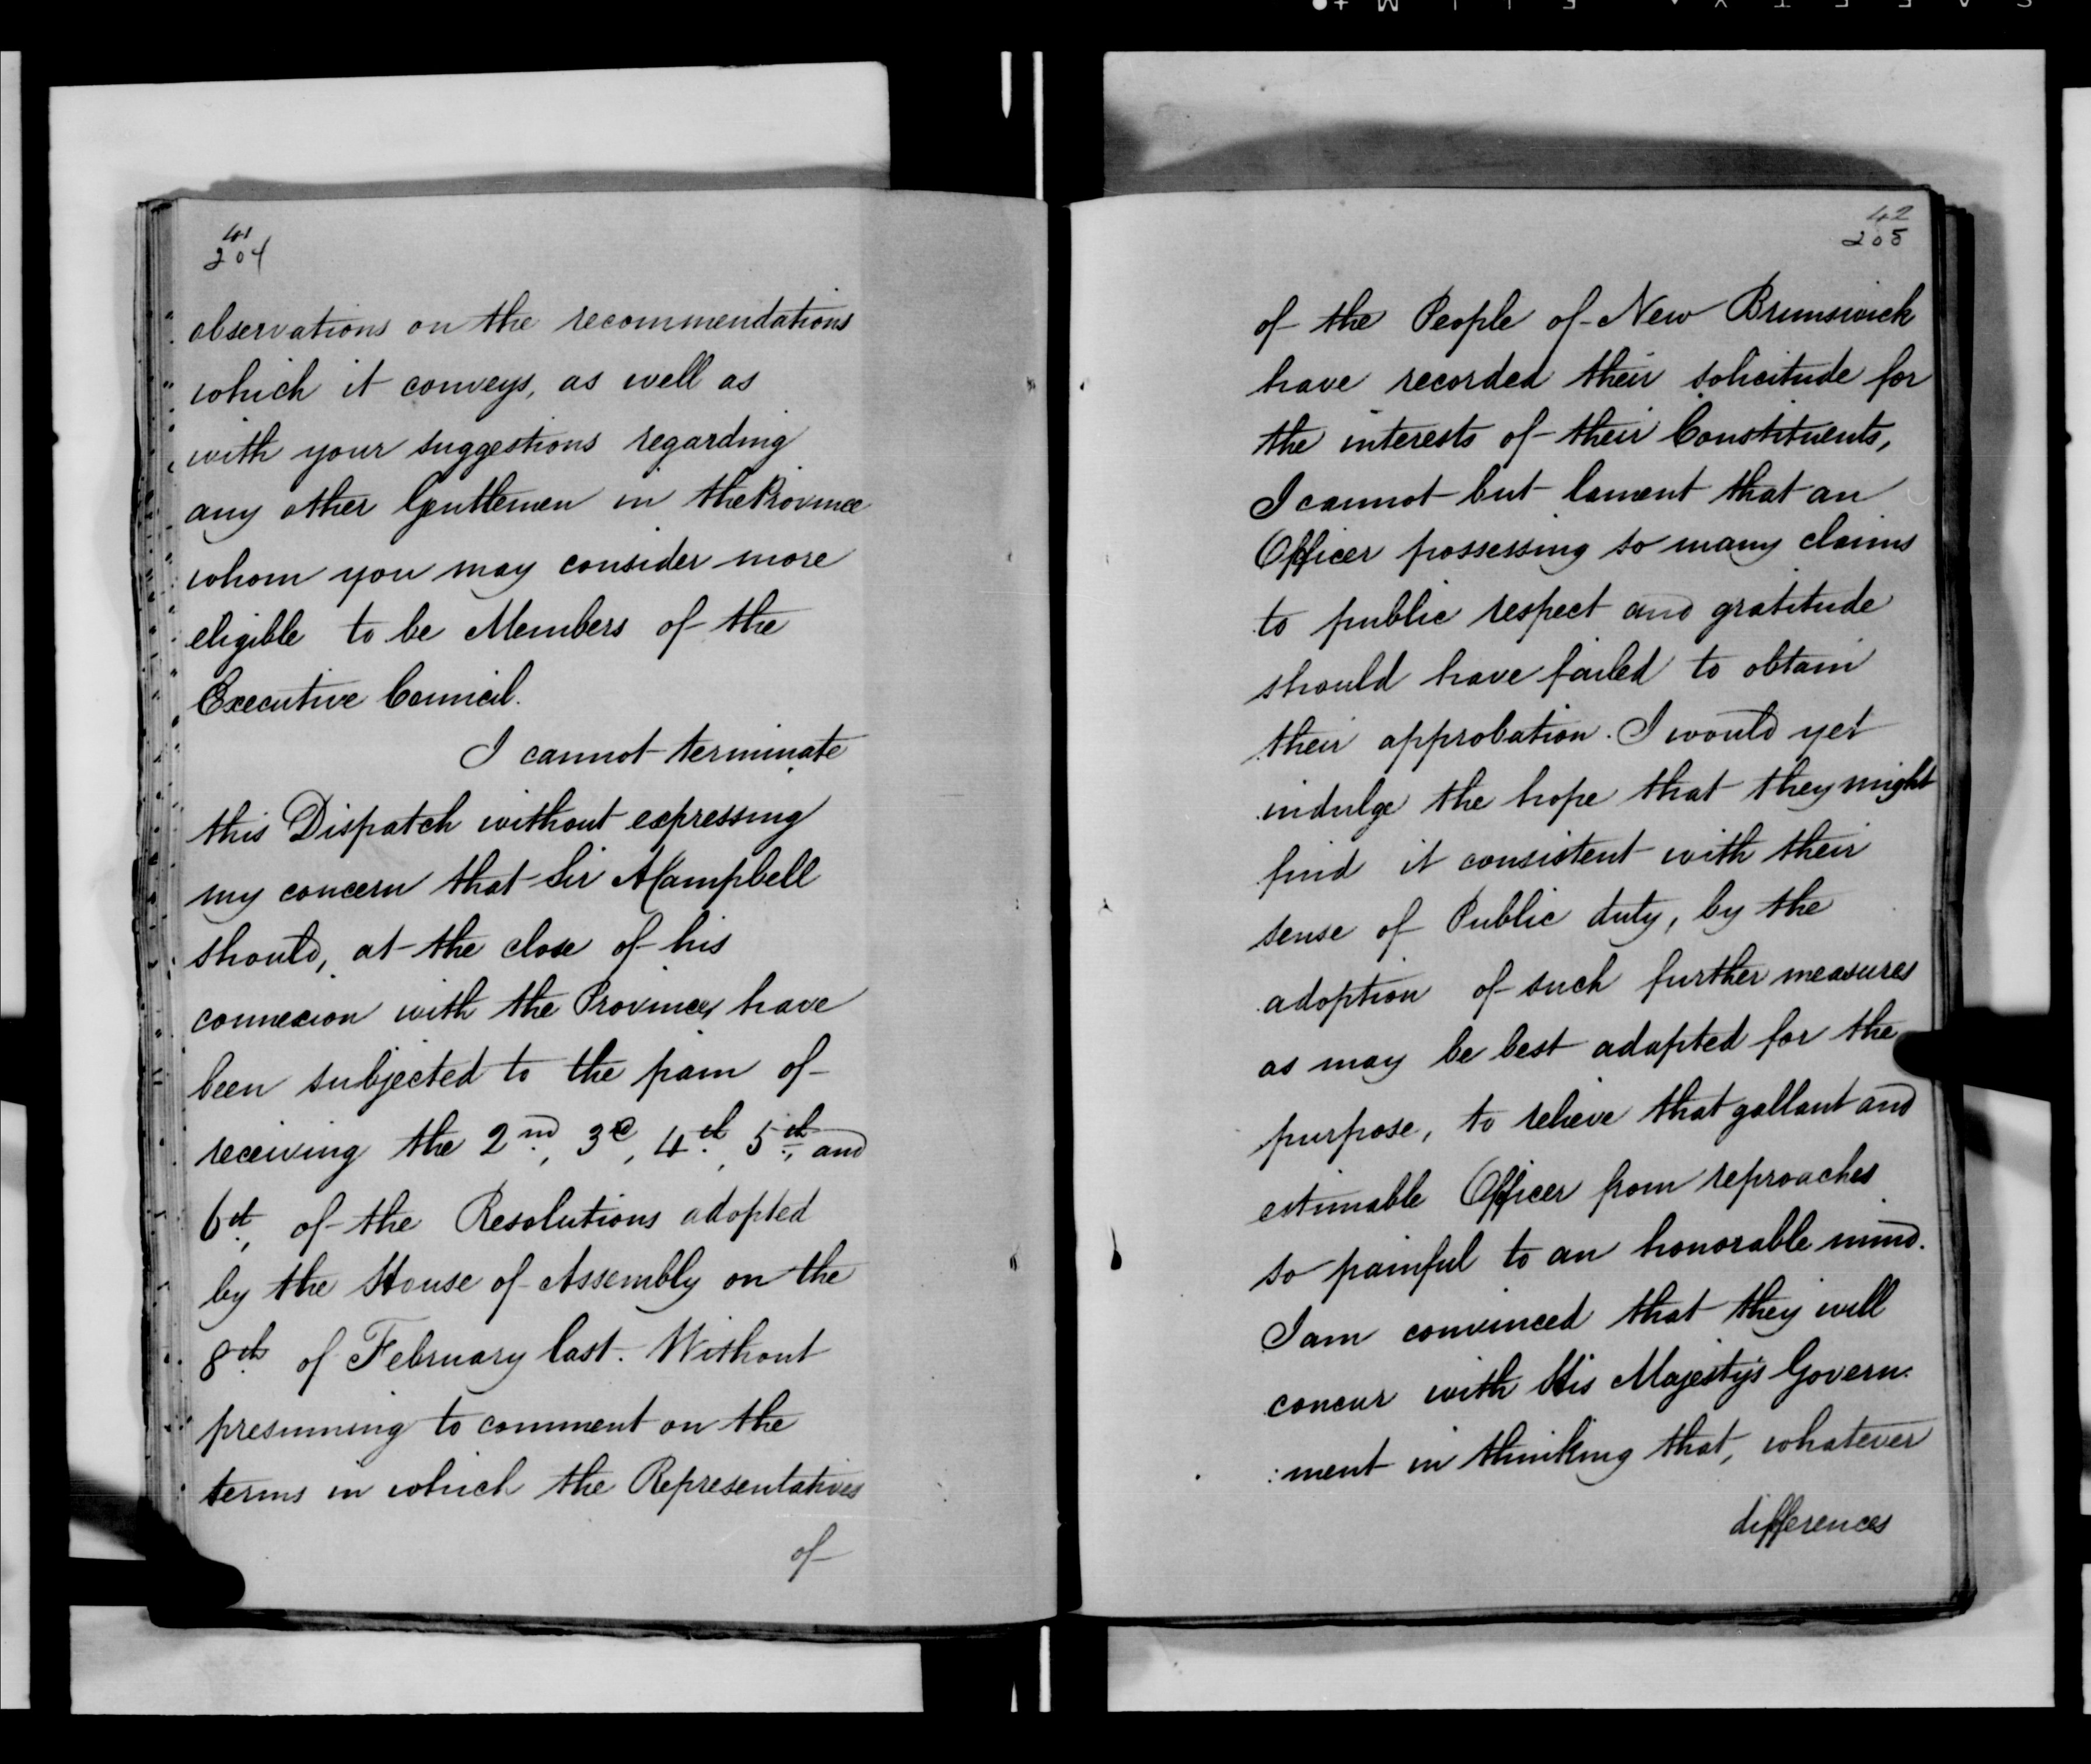 41
204
observations on the recommendations
which it conveys, as well as
with your suggestions regarding
any other Gentlemen in the Province
whom you may consider more
eligible to be Members of the
Executive Council.
I cannot terminate
this Dispatch without expressing
my concern that Sir A Campbell
should, at the close of his
connexion with the Province, have
been subjected to the pain of
receiving the 2nd, 3d, 4th, 5th, and
6th, of the Resolutions adopted
by the House of Assembly on the
8th of February last. Without
presuming to comment on the
terms in which the Representatives
of
42
205
of the People of New Brunswick
have recorded their solicitude for
the interests of their Constituents,
I cannot but lament that an
Officer possessing so many claims
to public respect and gratitude
should have failed to obtain
their approbation. I would yet
indulge the hope that they might
find it consistent with their
sense of Public duty, by the
adoption of such further measures
as may be best adapted for the
purpose, to relieve that gallant and
estimable Officer from reproaches
so painful to an honorable mind.
I am convinced that they will
concur with His Majesty's Govern:
:ment in thinking that, whatever
differences